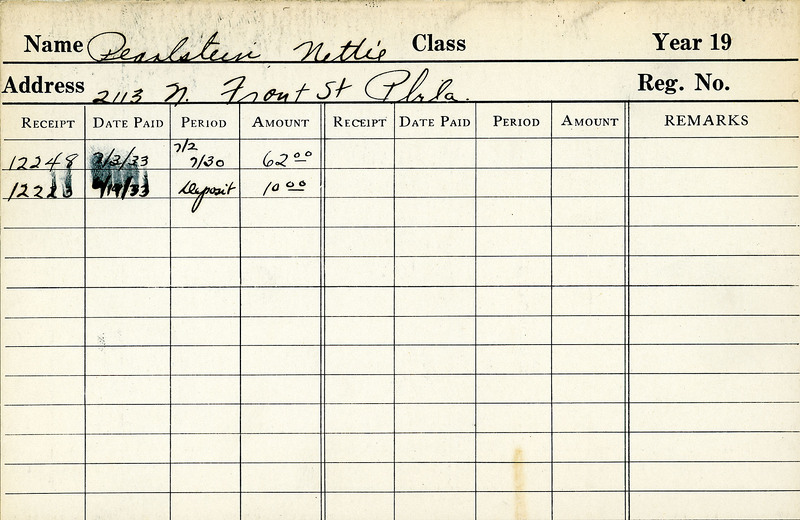 Name Pearlstein, Nettie Class Year 19
Address 2113 N. Front St Phila. Reg. No.
RECEIPT DATE PAID PERIOD AMOUNT RECEIPT DATE PAID PERIOD AMOUNT REMARKS
7/2
12248 7/30 62 00
Deposit 10 00